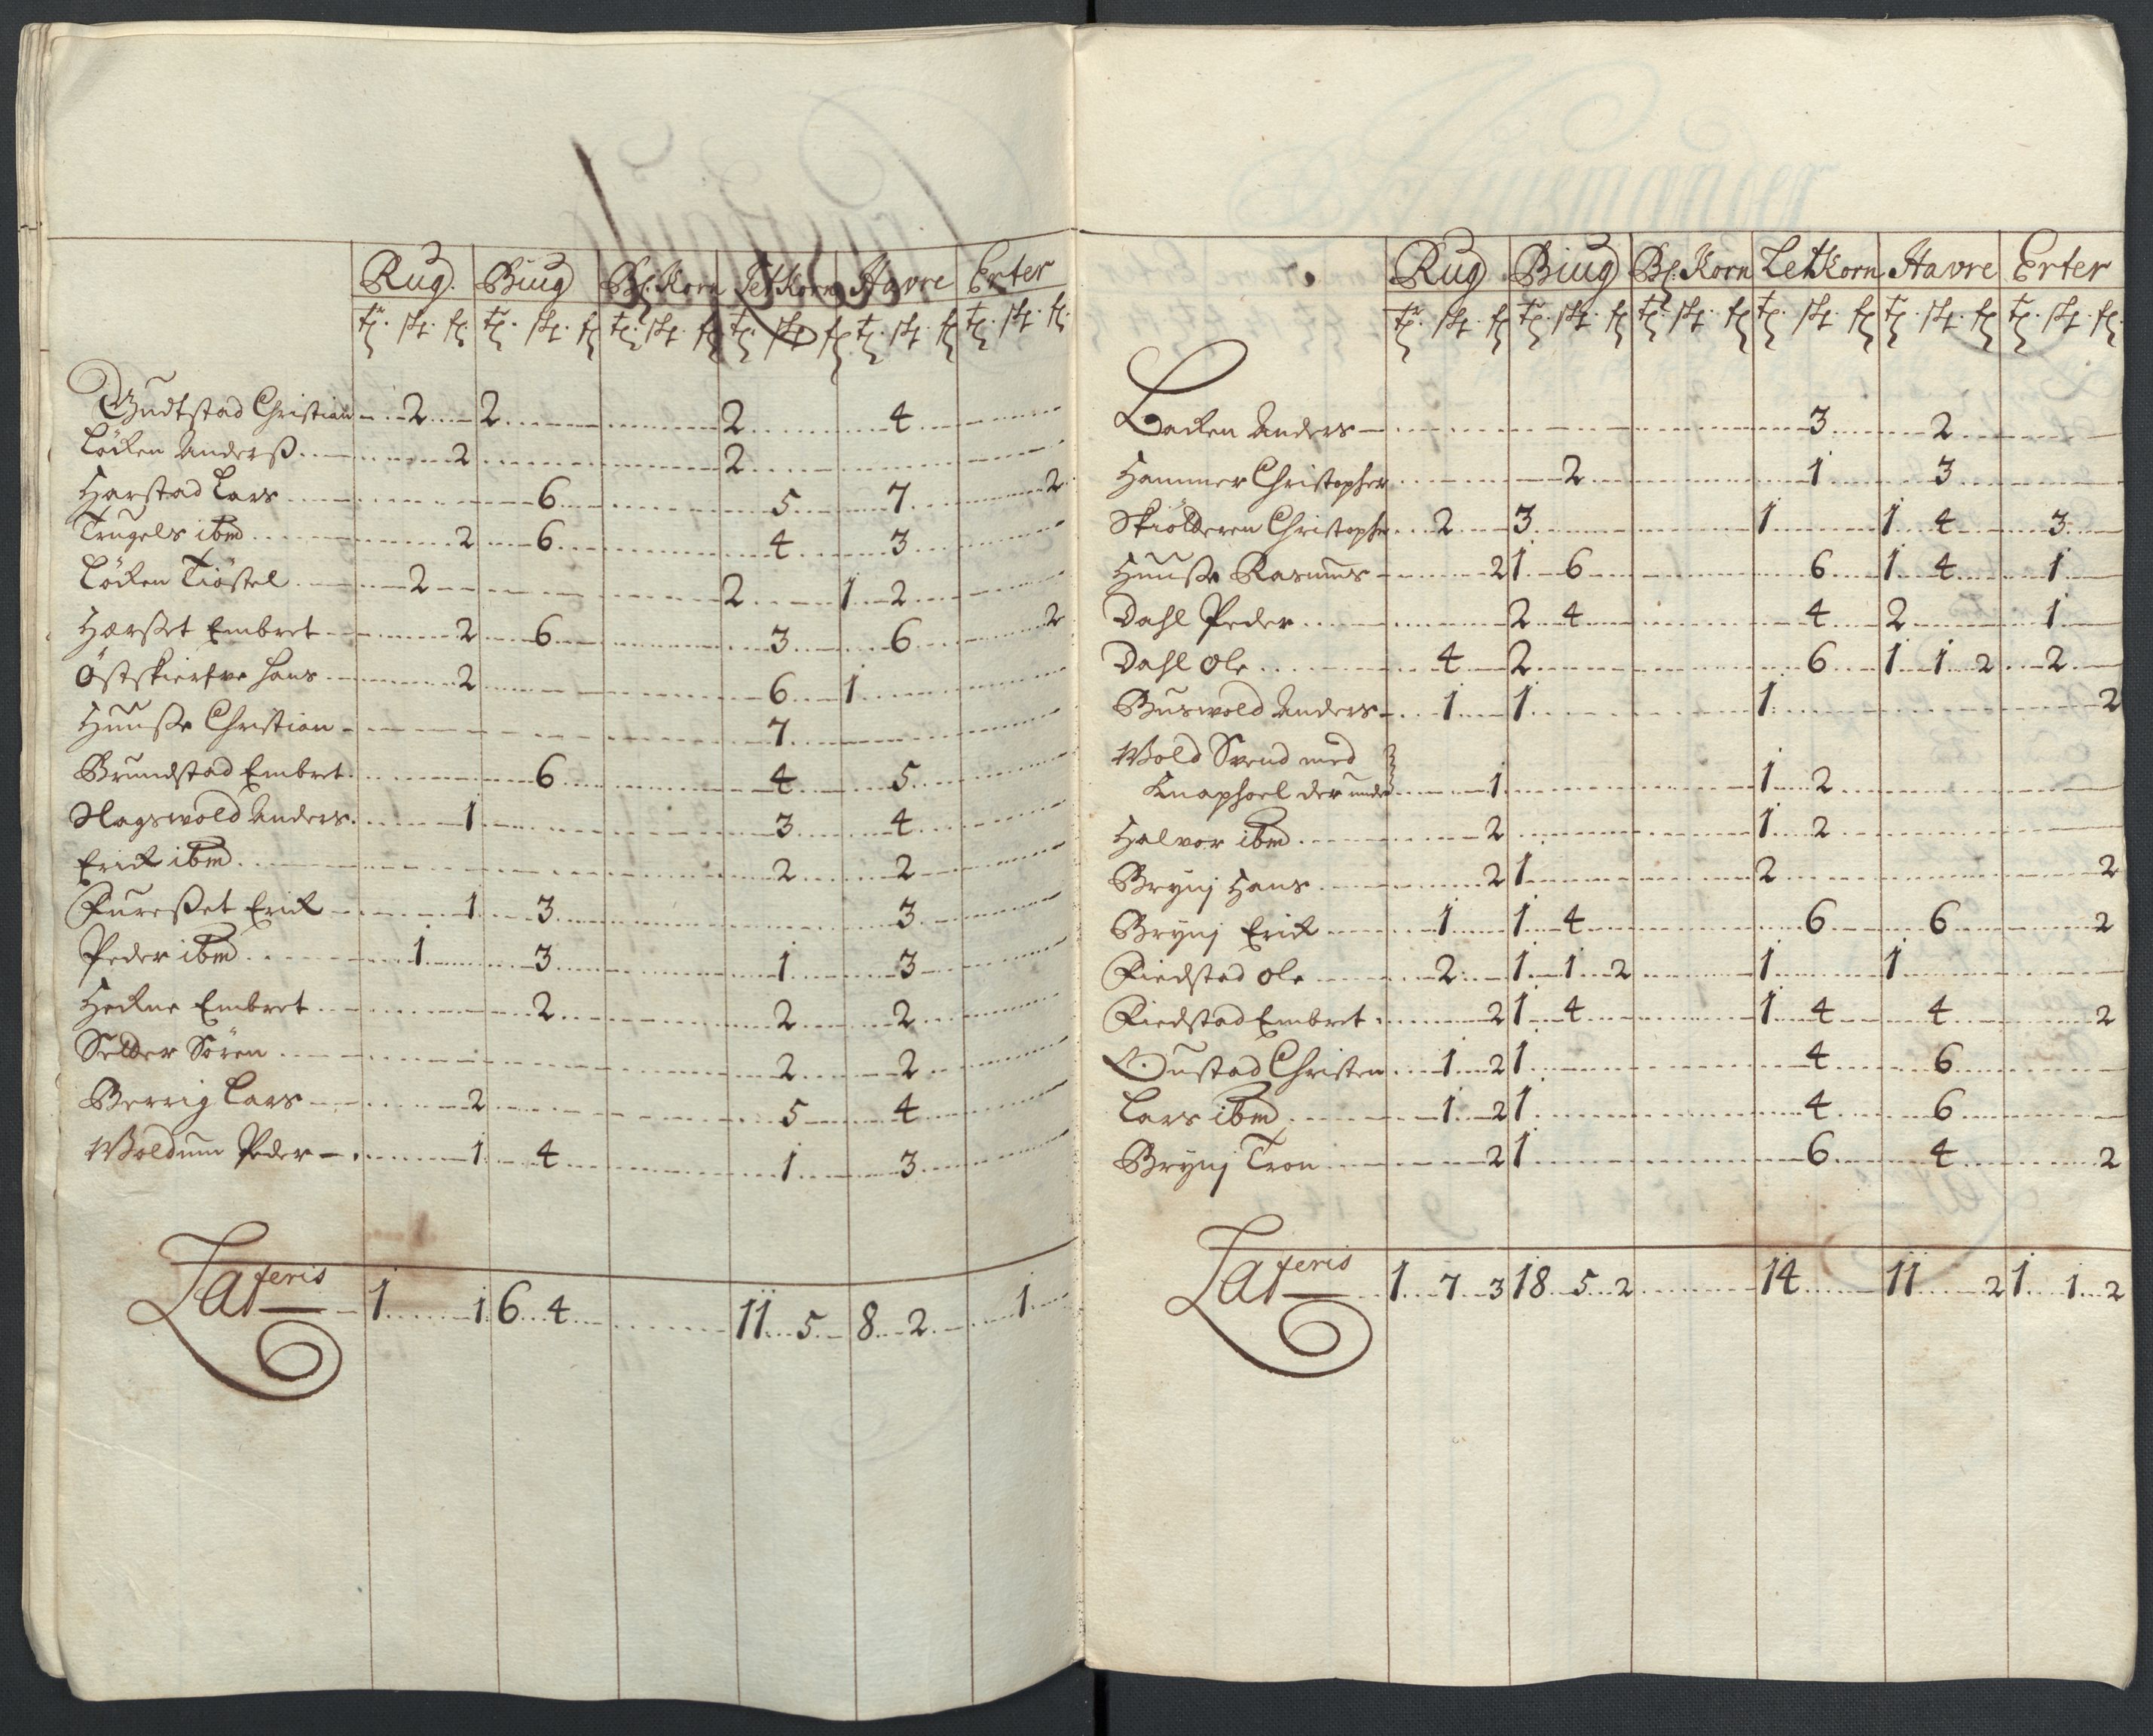 Rug. Biug Bl. Korn Letkorn Havre Erter
tr. sk. f. tr. sk. f. tr. sk. f. tr. sk. f. tr. sk. f. tr. sk. f.
Gudtstad Christian 2 2 2 4
Löcken Anderß 2 2
Harstad Lars 6 5 7 2
Trugels ibm 2 6 4 3
Löcken Tiöstel 2 2 1 2
Hærset Embret 2 6 3 6 2
Östskierfve Hans 2 6 1
Huuse Christian 7
Brundstad Embret 6 4 5
Slagswold Anders 1 3 4
Erick ibm 2 2
Fureßet Erick 1 3 3
Peder ibm 1 3 1 3
Heckne Embret 2 2 2
Selder Sören 2 2
Berrig Lars 2 5 4
Woldum Peder 1 4 1 3
Lateris 1 1 6 4 11 5 8 2 1
Rug Biug Bl. Korn Letkorn Havre Erter
tr. sk. f. tr. sk. f. tr. sk. f. tr. sk. f. tr. sk. f. tr. sk. f.
Backen Anders 3 2
Hammer Christopher 2 1 3
Skiolderen Christopher 2 3 1 1 4 3
Huuse Rasmus 2 1 6 6 1 4 1
Dahl Peder 2 4 4 2 1
Dahl Ole 4 2 6 1 1 2 2
Buswold Anders 1 1 1 2
Wold Svend med
Knaphoel der under 1 1 2
Halvor ibm 2 1 2
Brynj Hans 2 1 2 2
Brynj Erick 1 1 4 6 6 2
Fiedstad Ole 2 1 1 2 1 1
Fiedstad Embret 2 1 4 1 4 4 2
Oustad Christen 1 2 1 4 6
Lars ibm 1 2 1 4 6
Brynj Tron 2 1 6 4 2
Lateris 1 7 3 18 5 2 14 11 2 1 1 2